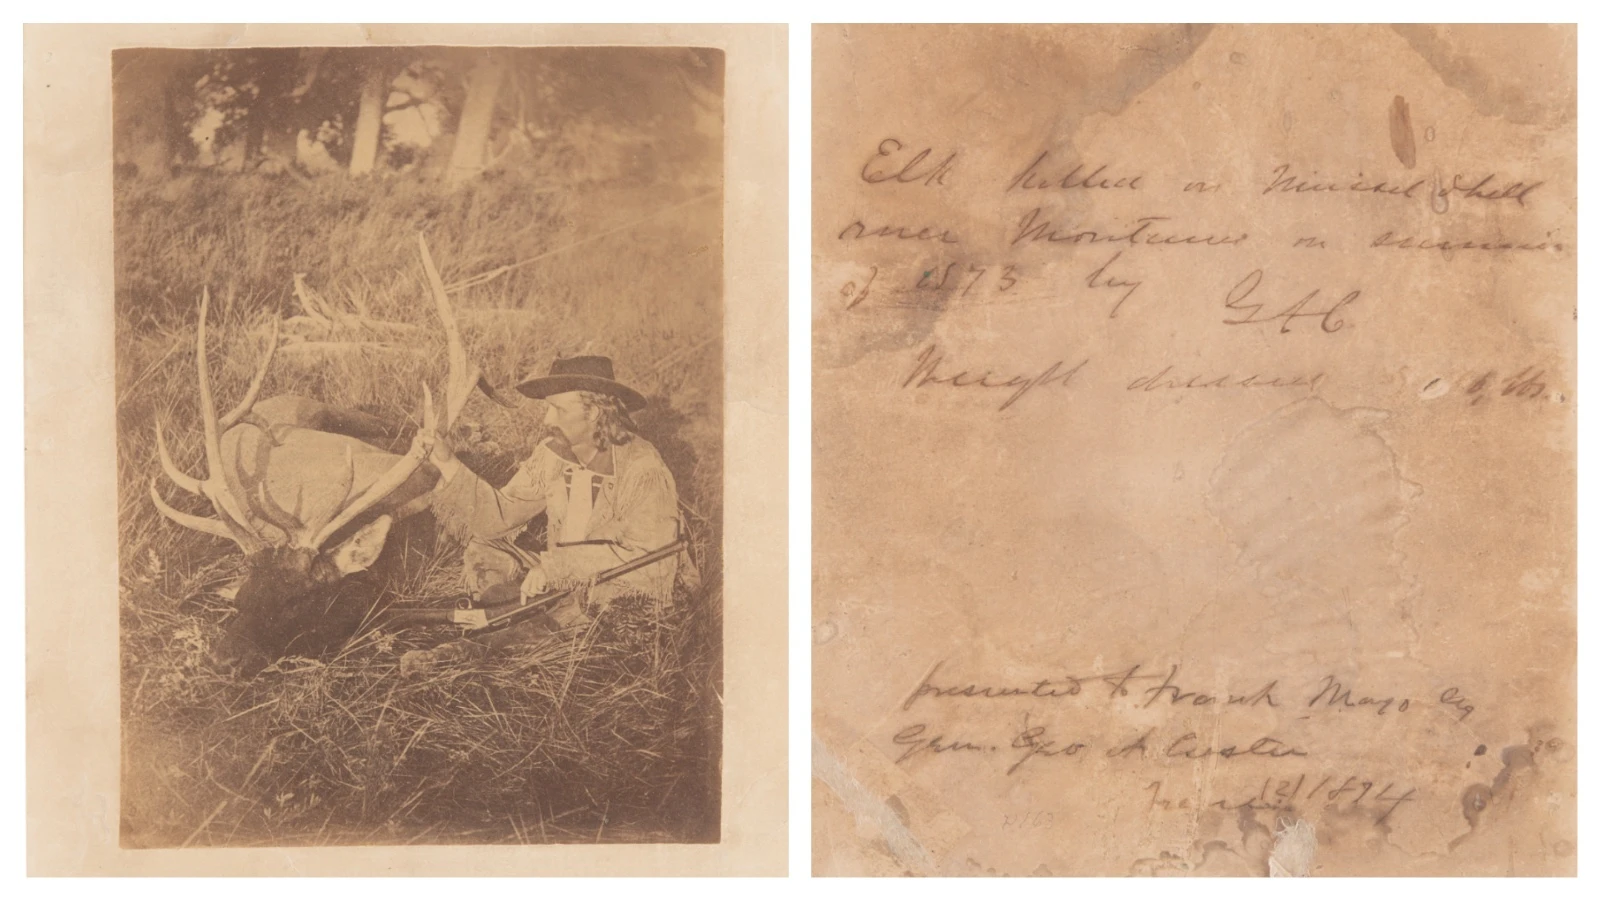 Elk killed on Mussel Shell
river Montana in summer
of 1873 by
GAC
Weight dressed lbs.
presented to Frank Mayo Esq
Genl. Geo A Custer
1874